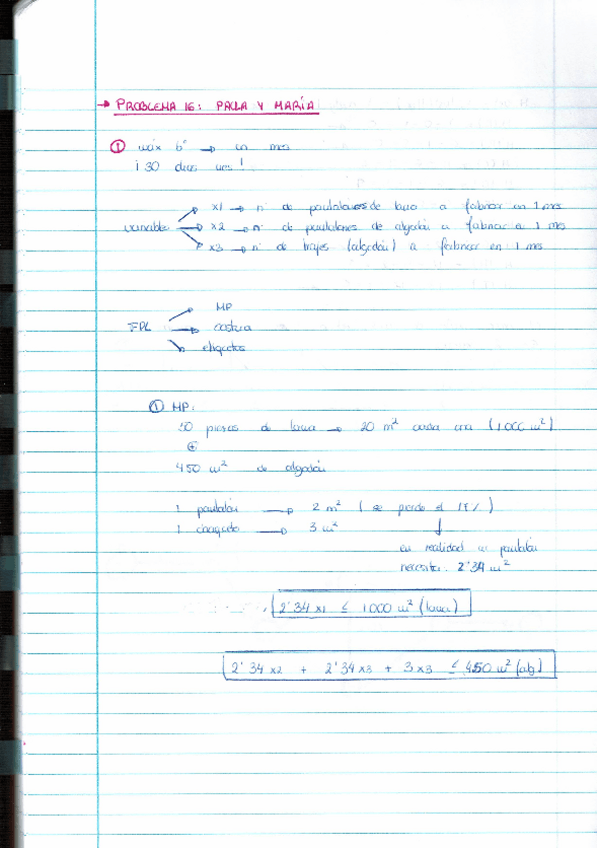 → PROBLEMA 16: PAULA Y MARÍA
① máx bº → un mes
¡ 30 días mes !
variable → x1 → nº de pantalones de lana a fabricar en 1 mes
→ x2 → nº de pantalones de algodón a fabricar en 1 mes
→ x3 → nº de trajes (algodón) a fabricar en 1 mes
FPL → MP
→ costura
→ etiquetas
① MP:
50 piezas de lana → 20 m² cada una (1000 m²)
⊕
450 m² de algodón
1 pantalón → 2 m² ( se pierde el 17% )
1 chaqueta → 3 m²
en realidad un pantalón
necesita: 2'34 m²
2'34 x1 ≤ 1000 m² (lana)
2'34 x2 + 2'34 x3 + 3 x3 ≤ 450 m² (alg)